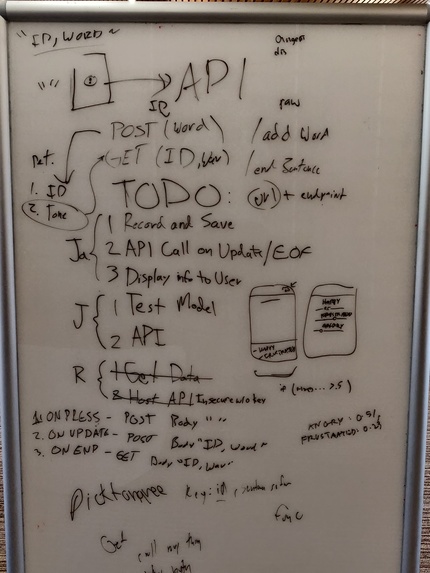 "ID, WORD"
"" → API
ID
POST (word) /add Word
GET (ID, Wav) /end Sentence
Ret.
1. ID
2. Tone
TODO: url + endpoint
Ja { 1 Record and Save
2 API Call on Update/EOF
3 Display info to User
J { 1 Test Model
2 API
R { 1 Get Data
2 Host API Insecure worker
HAPPY
ANGRY
if (... > .5)
1. ON PRESS - POST Body ""
2. ON UPDATE - POST Body "ID, word"
3. ON END - GET Body "ID, Wav"
ANGRY: 0.51
FRUSTRATED: 0.25
Key: id
func
Get
call my